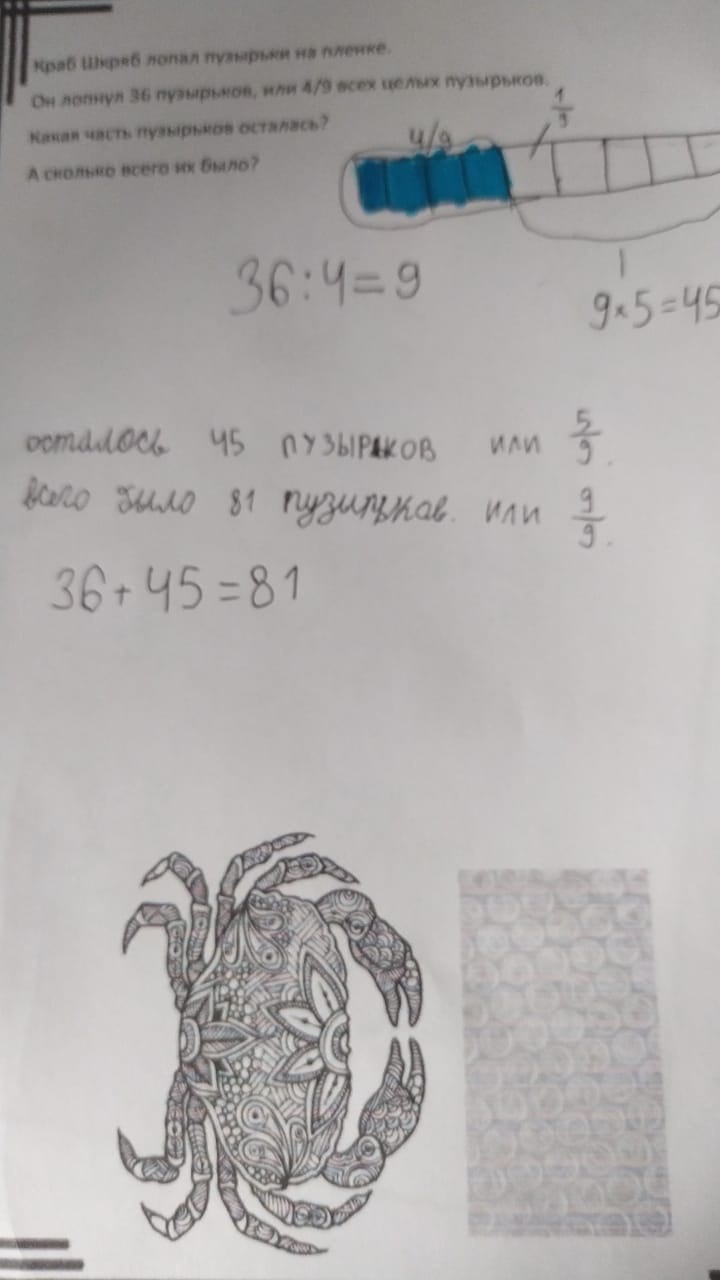 Краб Шкряб лопал пузырьки на пленке.
Он лопнул 36 пузырьков, или 4/9 всех целых пузырьков.
Какая часть пузырьков осталась?
А сколько всего их было?
4/9
1/9
36:4=9
9×5=45
осталось 45 пузырьков или 5/9.
всего было 81 пузирьков. или 9/9.
36+45=81